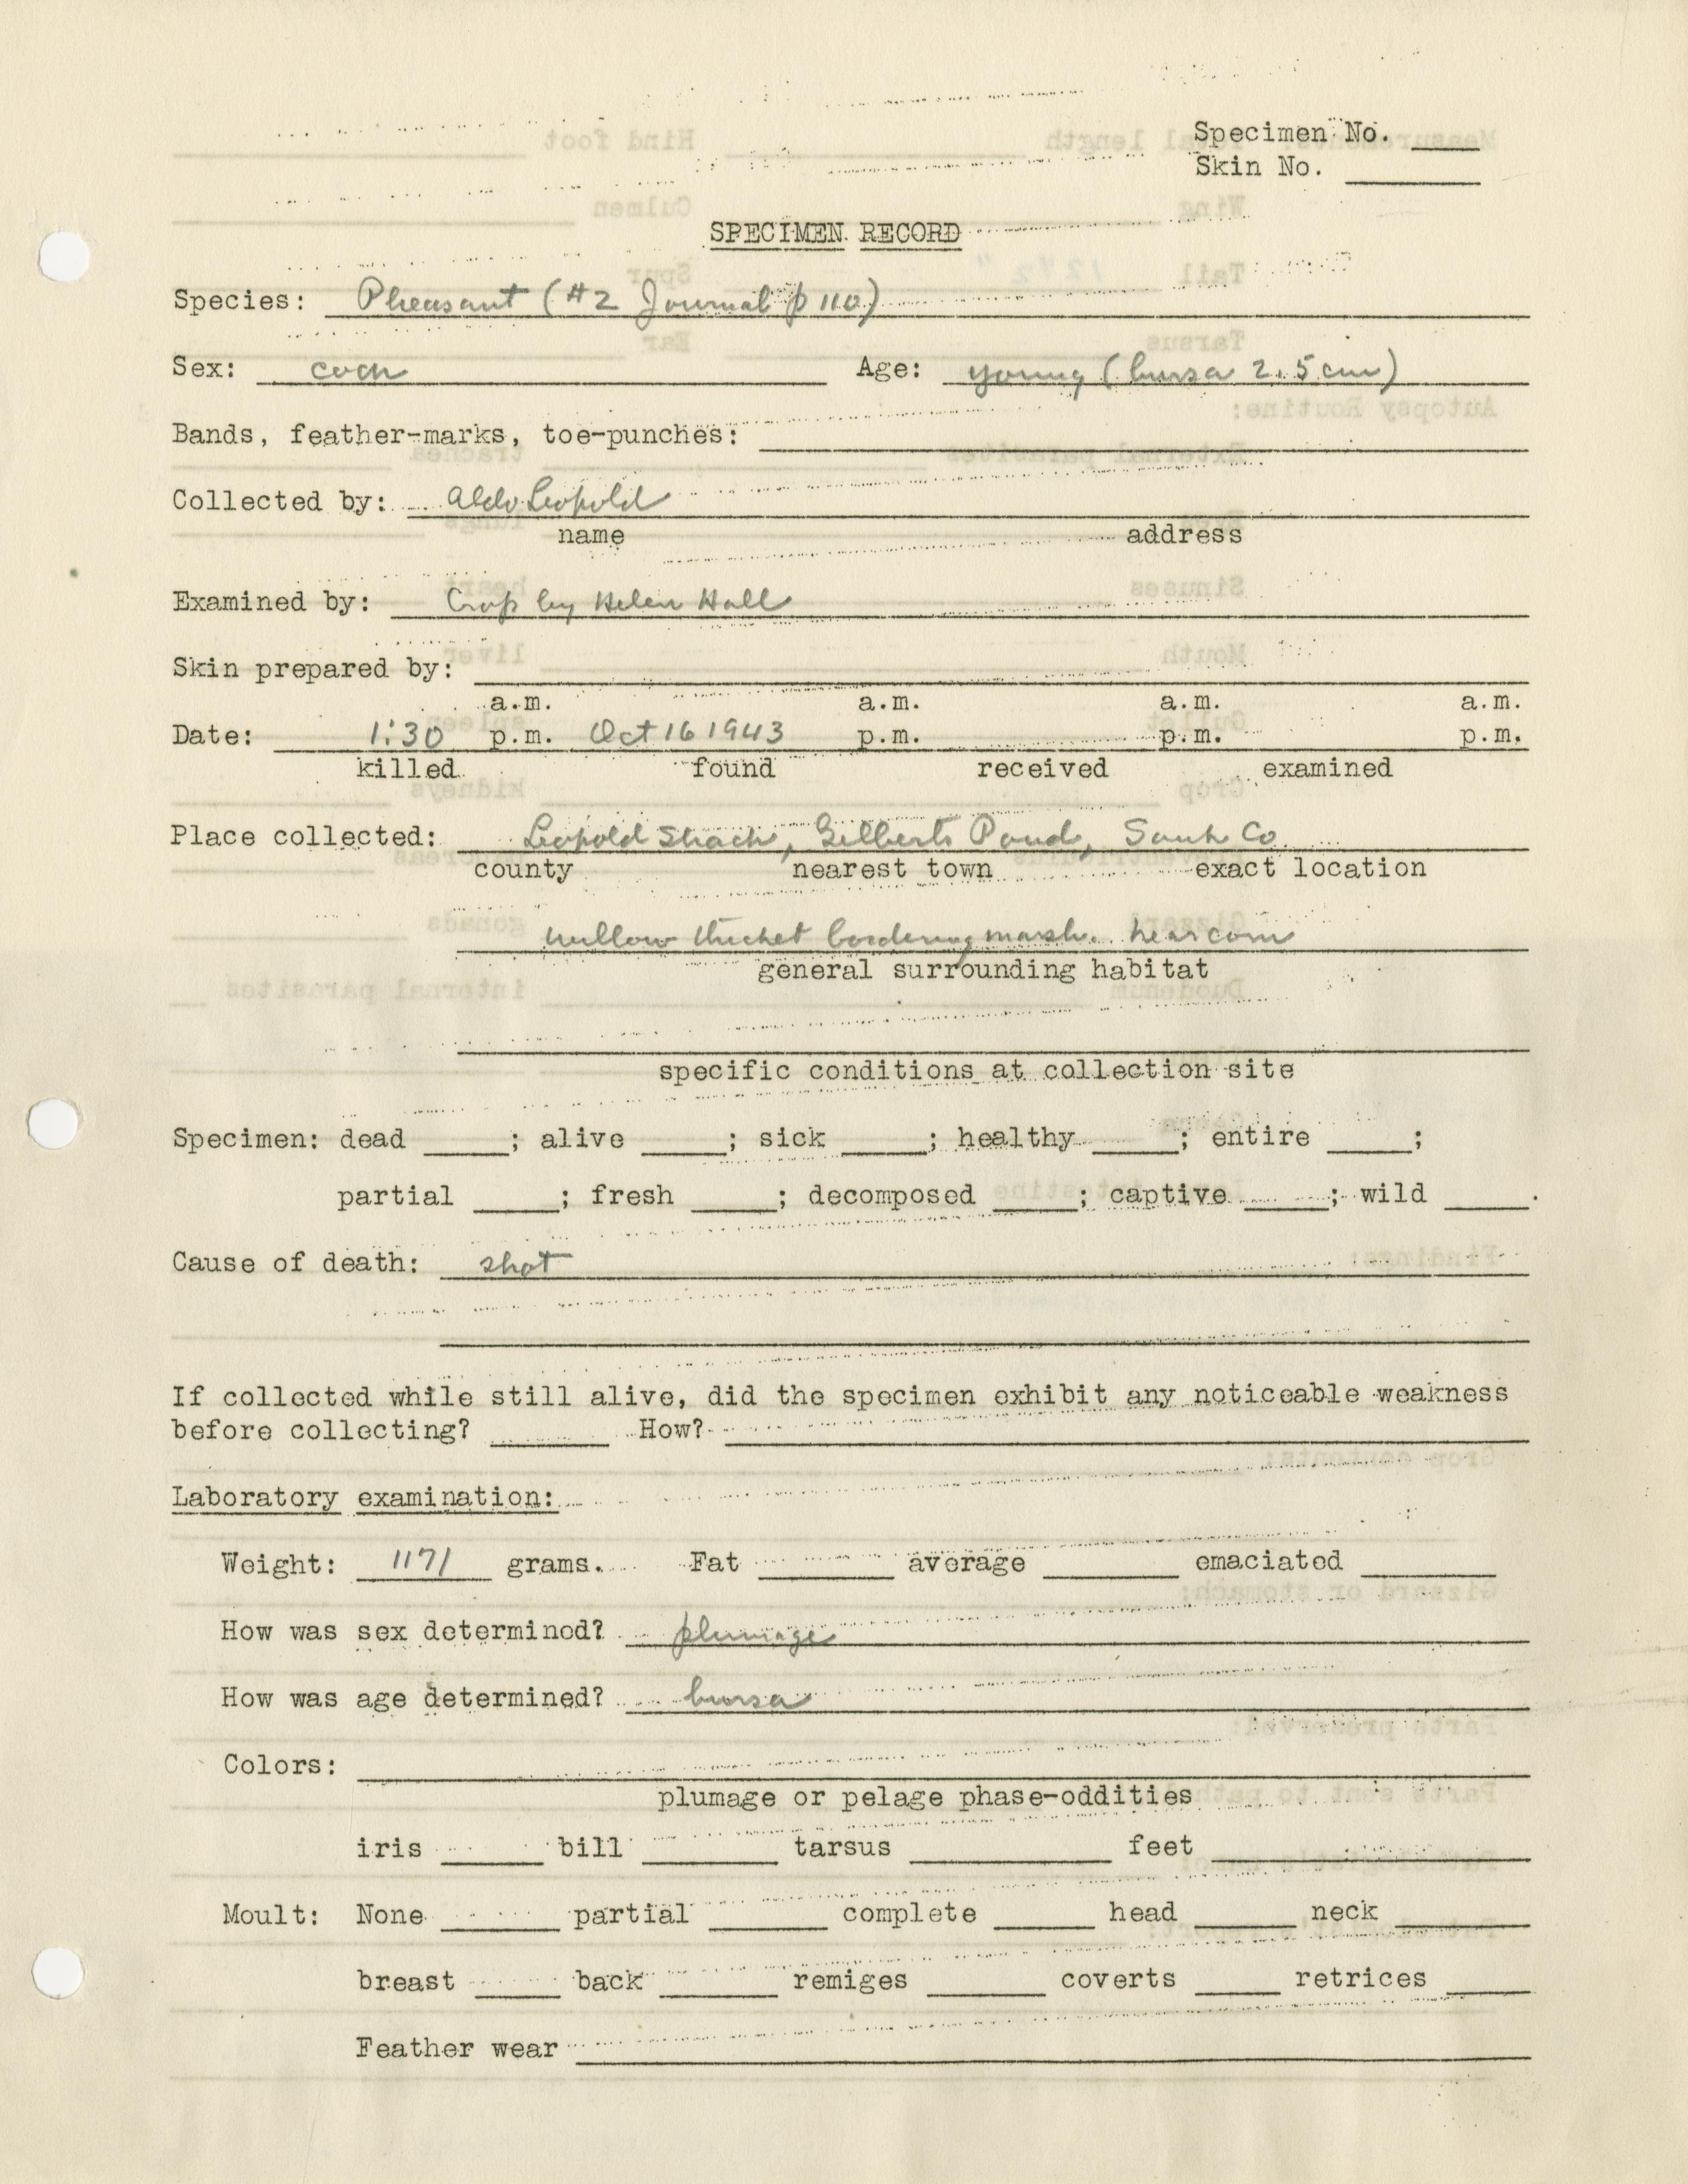 Specimen No. ____
Skin No. ____
SPECIMEN RECORD
Species: Pheasant (#2 Journal p 110)
Sex: cock Age: young (bursa 2.5 cm)
Bands, feather-marks, toe-punches: ____
Collected by: Aldo Leopold
name address
Examined by: Crop by Helen Hall
Skin prepared by: ____
a.m. a.m. a.m. a.m.
Date: 1:30 p.m. Oct 16 1943 p.m. p.m. p.m.
killed found received examined
Place collected: Leopold Shack, Gilberts Pond, Sauk Co.
county nearest town exact location
willow thicket bordering marsh. near corn
general surrounding habitat
specific conditions at collection site
Specimen: dead ____; alive ____; sick ____; healthy ____; entire ____;
partial ____; fresh ____; decomposed ____; captive ____; wild ____.
Cause of death: shot
If collected while still alive, did the specimen exhibit any noticeable weakness
before collecting? ____ How? ____
Laboratory examination:
Weight: 1171 grams. Fat ____ average ____ emaciated ____
How was sex determined? plumage
How was age determined? bursa
Colors: ____
plumage or pelage phase-oddities
iris ____ bill ____ tarsus ____ feet ____
Moult: None ____ partial ____ complete ____ head ____ neck ____
breast ____ back ____ remiges ____ coverts ____ retrices ____
Feather wear ____